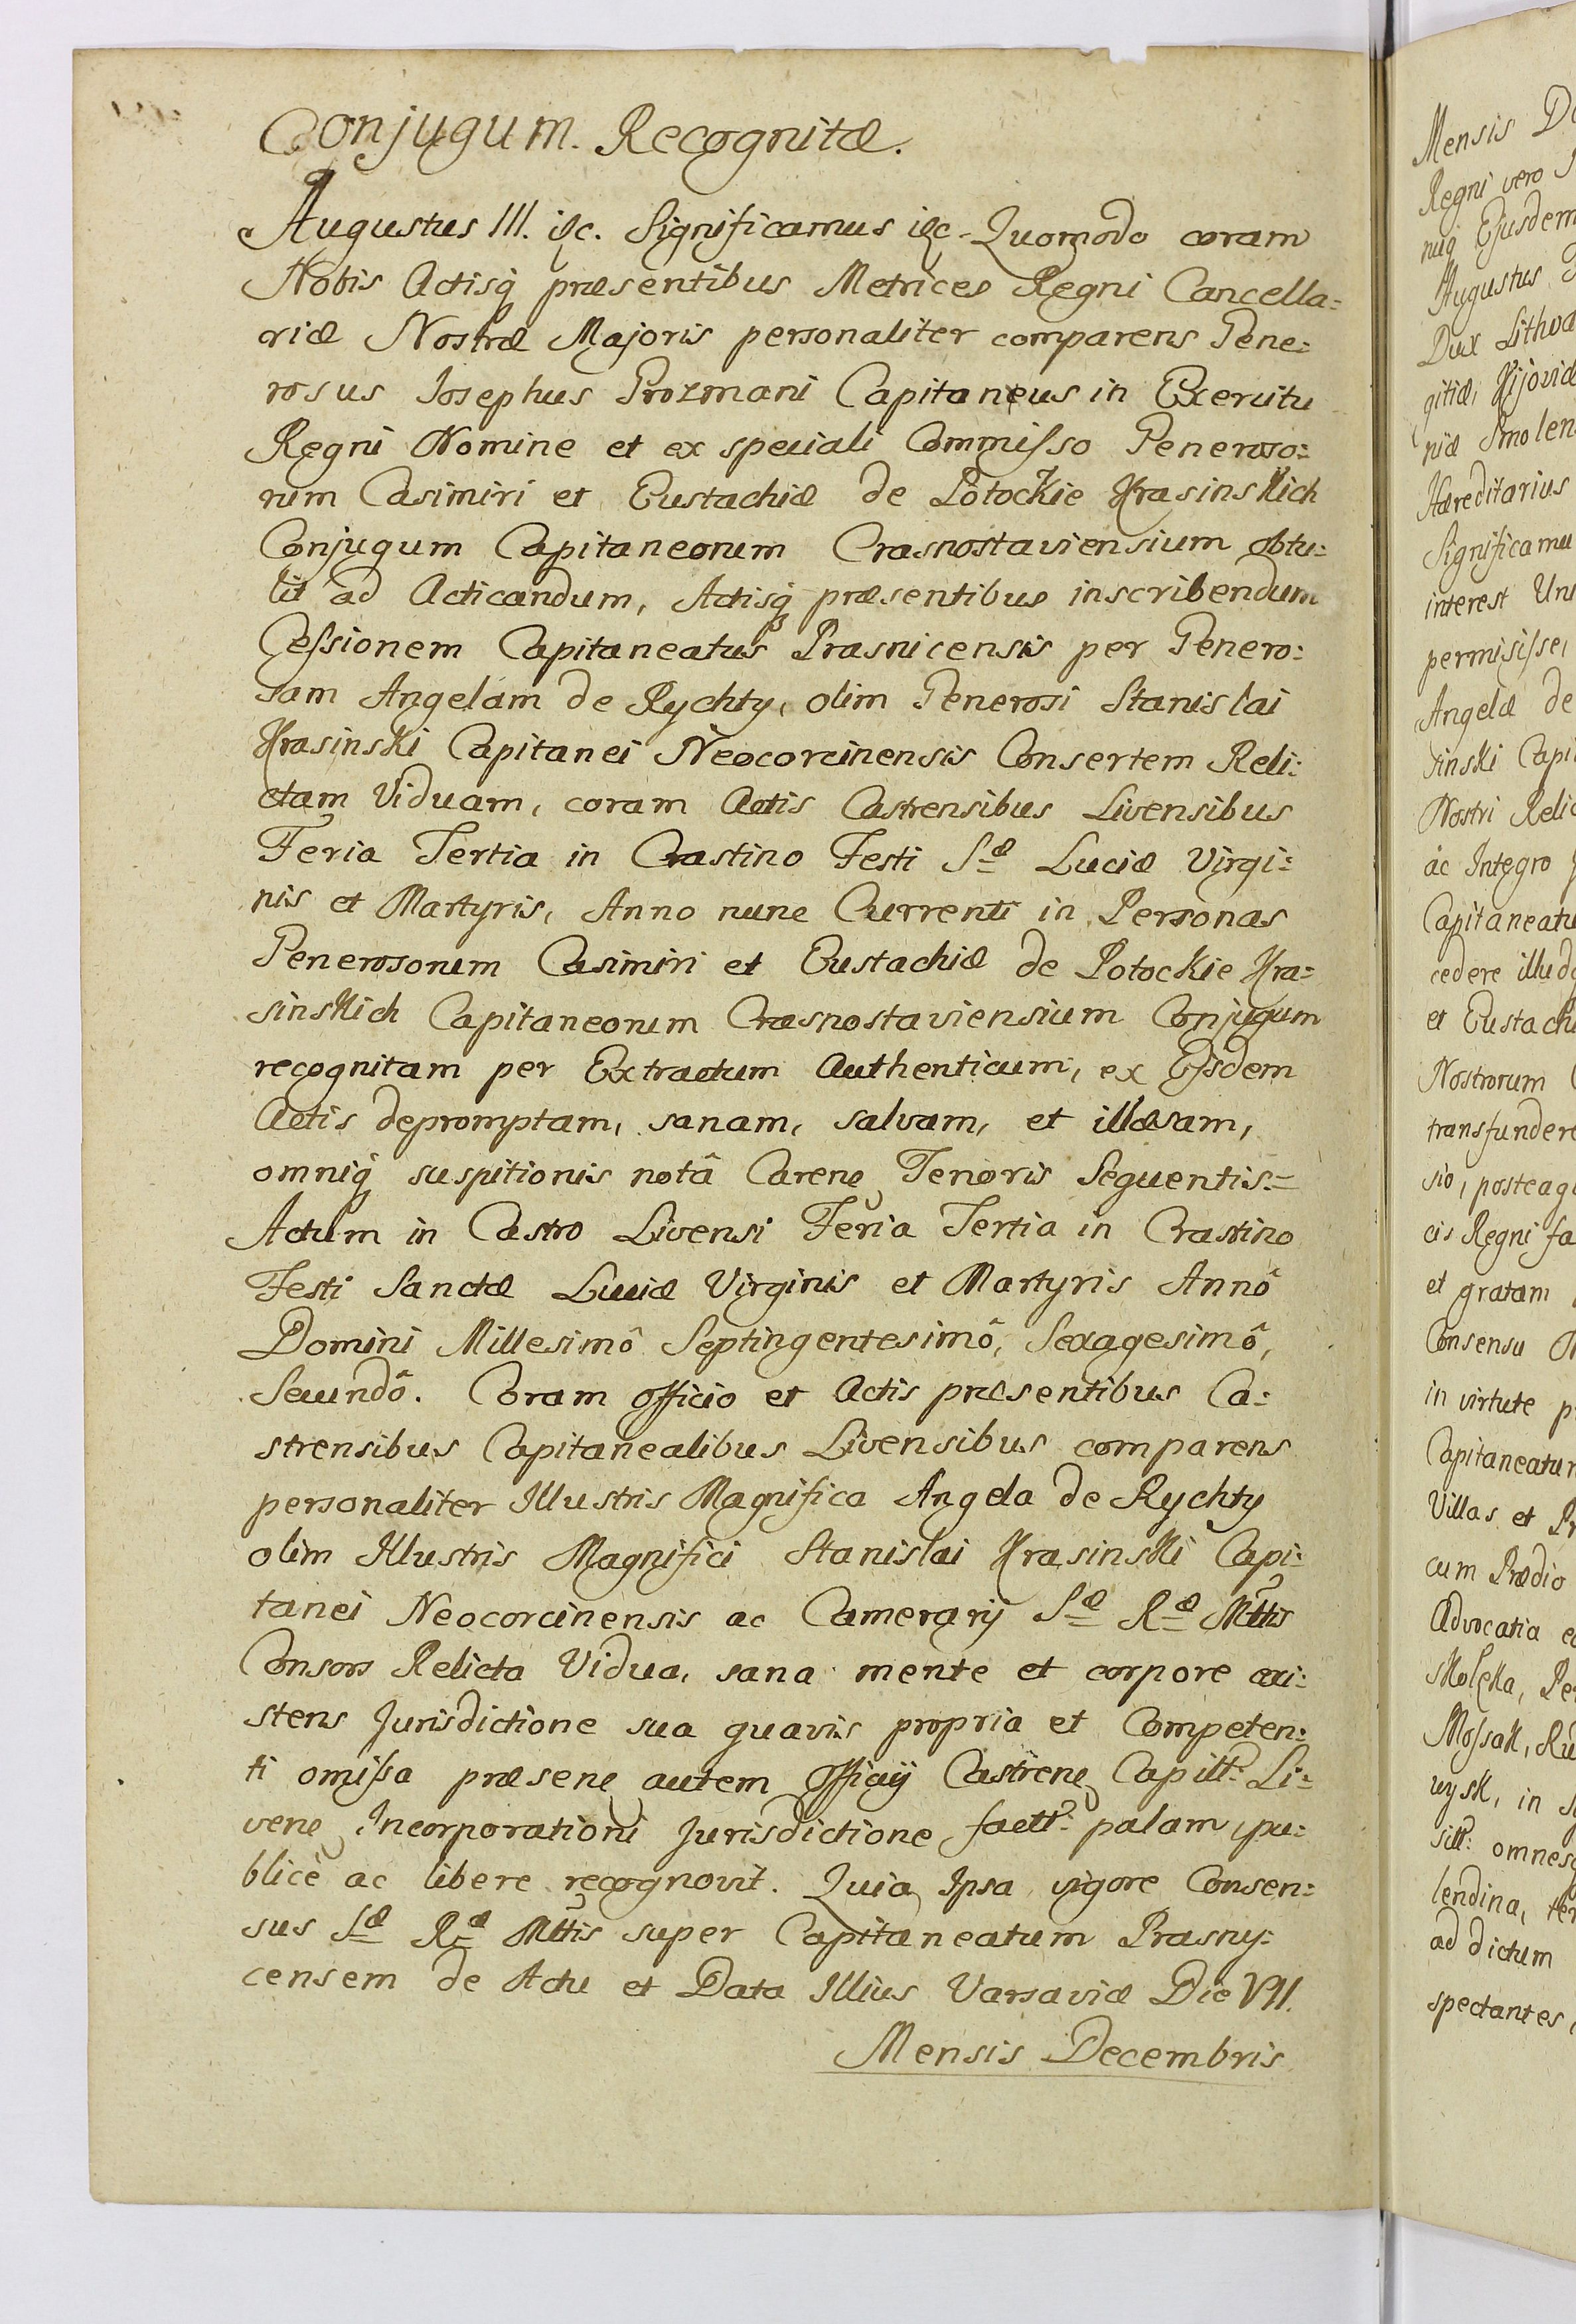 Conjugum. Recognitæ.
Augustus III. &c. Significamus &c. Quomodo coram
Nobis Actisq præsentibus Metrices Regni Cancella=
riæ Nostræ Majoris personaliter comparens Gene=
rosus Josephus Grozmani Capitaneus in Exercitu
Regni Nomine et ex speciali Commisso Generoso=
rum Casimiri et Eustachiæ de Potockie Krasinskich
Conjugum Capitaneorum Crasnostaviensium obtu=
lit ad Acticandum, Actisq præsentibus inscribendum
Cessionem Capitaneatus Prasnicensis per Genero=
sam Angelam de Rychty, olim Generosi Stanislai
Krasinski Capitanei Neocorcinensis Consertem Reli=
ctam Viduam, coram Actis Castrensibus Livensibus
Feria Tertia in Crastino Festi Sæ Luciæ Virgi=
nis et Martyris, Anno nunc Currenti in Personas
Generosorum Casimiri et Eustachiæ de Potockie Kra=
sinskich Capitaneorum Crasnostaviensium Conjugum
recognitam per Extractum Authenticum, ex Ejsdem
Actis depromptam, sanam, salvam, et illæsam,
omniq suspitionis notâ Caren Tenoris Sequentis=
Actum in Castro Livensi Feria Tertia in Crastino
Festi Sanctæ Luciæ Virginis et Martyris Annô
Domini Millesimô Septingentesimô, Sexagesimô,
Secundô. Coram officio et Actis præsentibus Ca=
strensibus Capitanealibus Livensibus comparens
personaliter Illustris Magnifica Angela de Rychty
olim Illustris Magnifici Stanislai Krasinski Capi=
tanei Neocorcinensis ac Camerarij Sæ Ræ Mttis
Consors Relicta Vidua, sana mente et corpore exi=
stens Jurisdictione sua quavis propria et Competen=
ti omissa præsen autem Officij Castren Capitt: Li=
ven Incorporationi Jurisdictione factt: palam, pu=
blicè ac libere recognovit. Quia Ipsa vigore Consen=
sus Sæ Ræ Mttis super Capitaneatum Prasny=
censem de Actu et Data Illius Varsaviæ Die VII.
Mensis Decembris
Mensis
Regni vero
Ejusdem
Augustus
Dux Lithva
gitiæ, Kijoviæ
niæ Smolen
Hæreditarius
Significamu
interest Uni
permisisse,
Angelæ de
sinski Capi
Nostri Relic
ac Integro
Capitaneatu
cedere illudq
et Eustachi
Nostrorum
transfundere
sio, posteaq
cis Regni fa
et gratam
Consensu
in virtute p
Capitaneatum
Villas et Pr
cum Prædio
Advocatia
in
sitt: omnesq
lendina,
ad dictum
spectantes